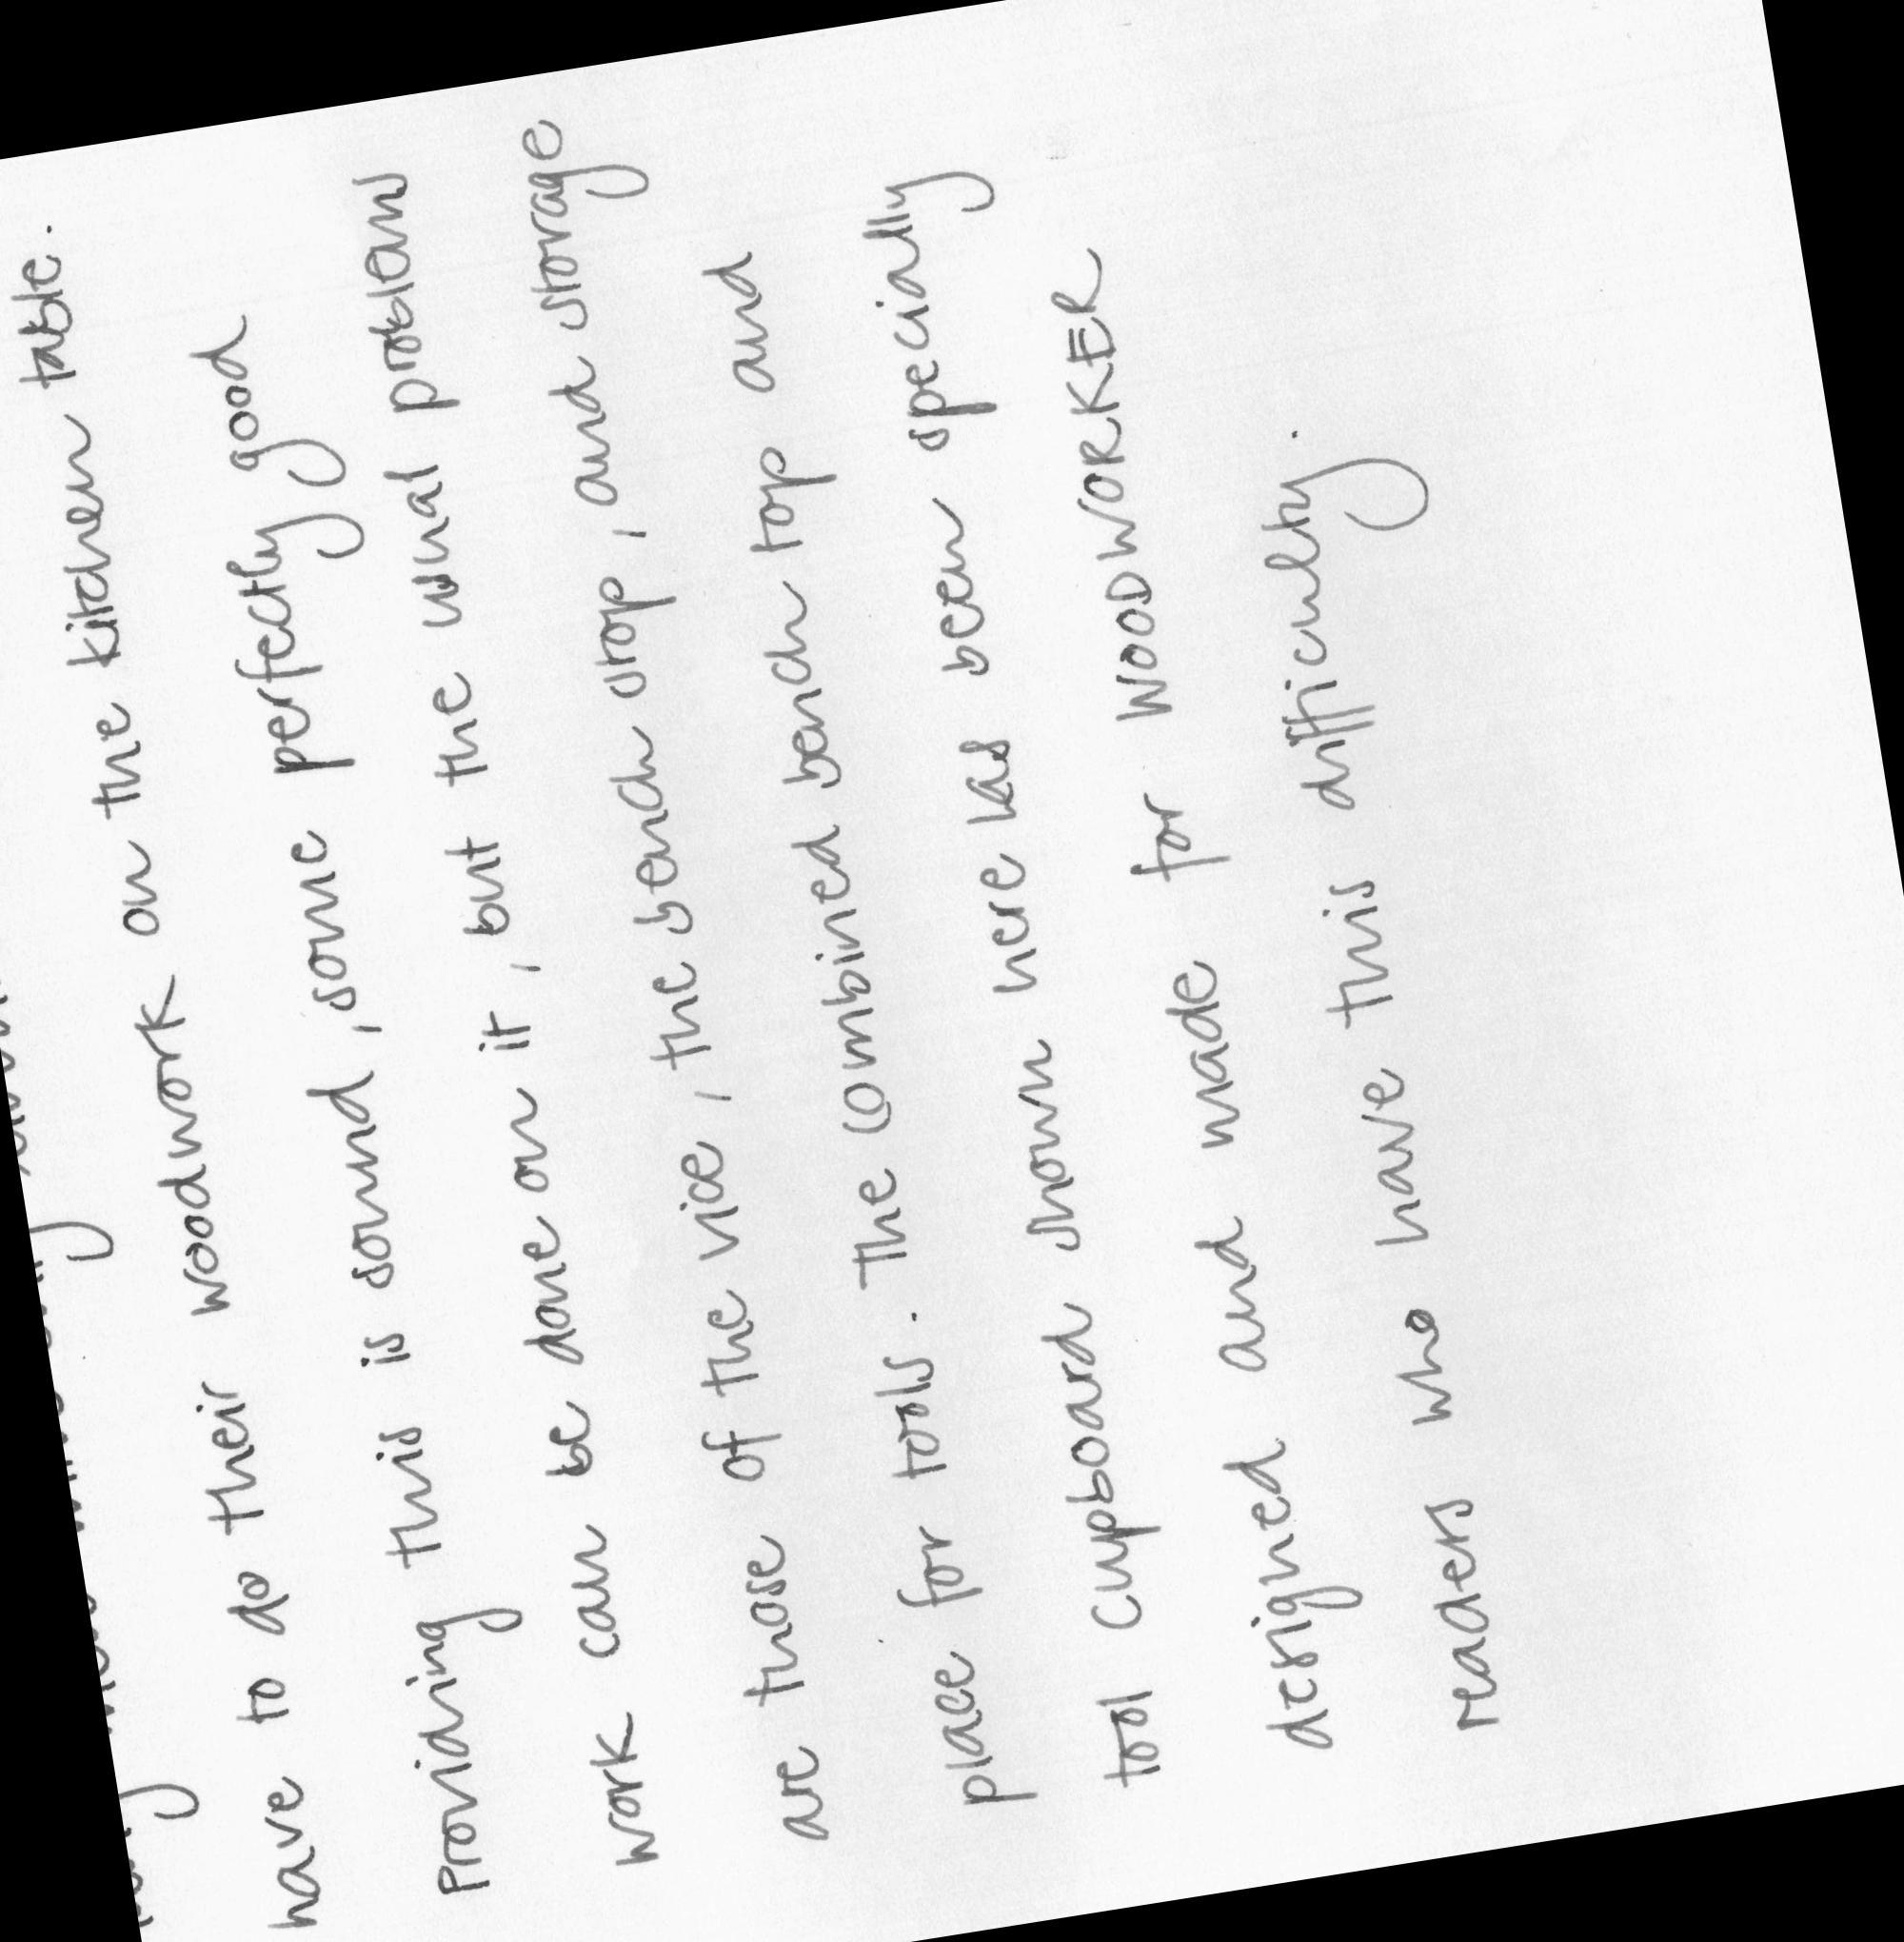 have to do their woodwork on the kitchen table.
Providing this is sound, some perfectly good
work can be done on it, but the usual problems
are those of the vice, the bench stop, and storage
place for tools. The combined bench top and
tool cupboard shown here has been specially
designed and made for WOODWORKER
readers who have this difficulty.